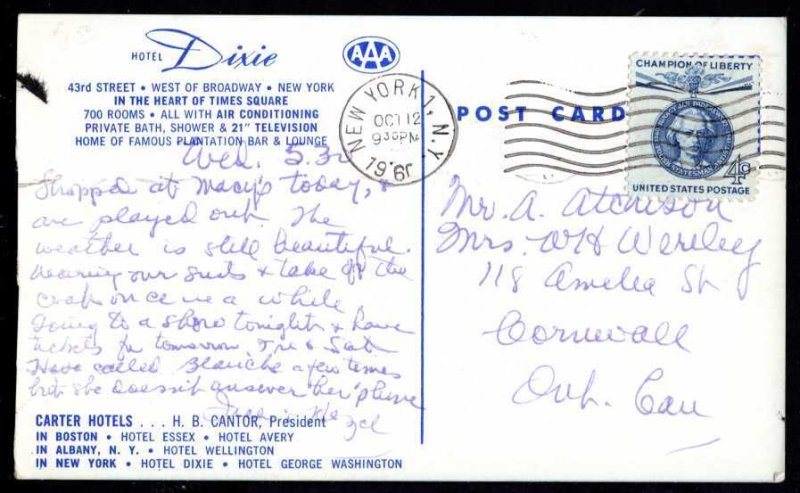 HOTEL Dixie
AAA
43rd STREET • WEST OF BROADWAY • NEW YORK
IN THE HEART OF TIMES SQUARE
700 ROOMS • ALL WITH AIR CONDITIONING
PRIVATE BATH, SHOWER & 21" TELEVISION
HOME OF FAMOUS PLANTATION BAR & LOUNGE
Wed. 5.30
Shopped at Macy's today, &
are played out. The
weather is still beautiful.
Wearing our suits & take off the
coats once in a while
Going to a show tonight & have
tickets for tomorrow Fri & Sat
Have called Blanche a few times
but she doesn't answer her phone
CARTER HOTELS . . . H. B. CANTOR, President
IN BOSTON • HOTEL ESSEX • HOTEL AVERY
IN ALBANY, N. Y. • HOTEL WELLINGTON
IN NEW YORK • HOTEL DIXIE • HOTEL GEORGE WASHINGTON
NEW YORK 1, N.Y.
OCT 12
9 30 PM
1960
POST CARD
CHAMPION OF LIBERTY
4¢
UNITED STATES POSTAGE
Mr. A. Atchison
Mrs. WH Wereley
118 Amelia St
Cornwall
Ont. Can